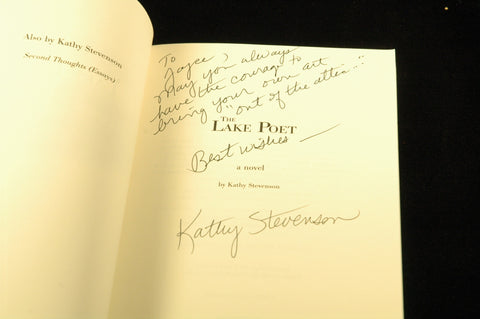 Also by Kathy Stevenson
Second Thoughts (Essays)
To
Joyce,
May you always
have the courage to
bring your own art
"out of the attic..."
THE
LAKE POET
Best wishes —
a novel
by Kathy Stevenson
Kathy Stevenson